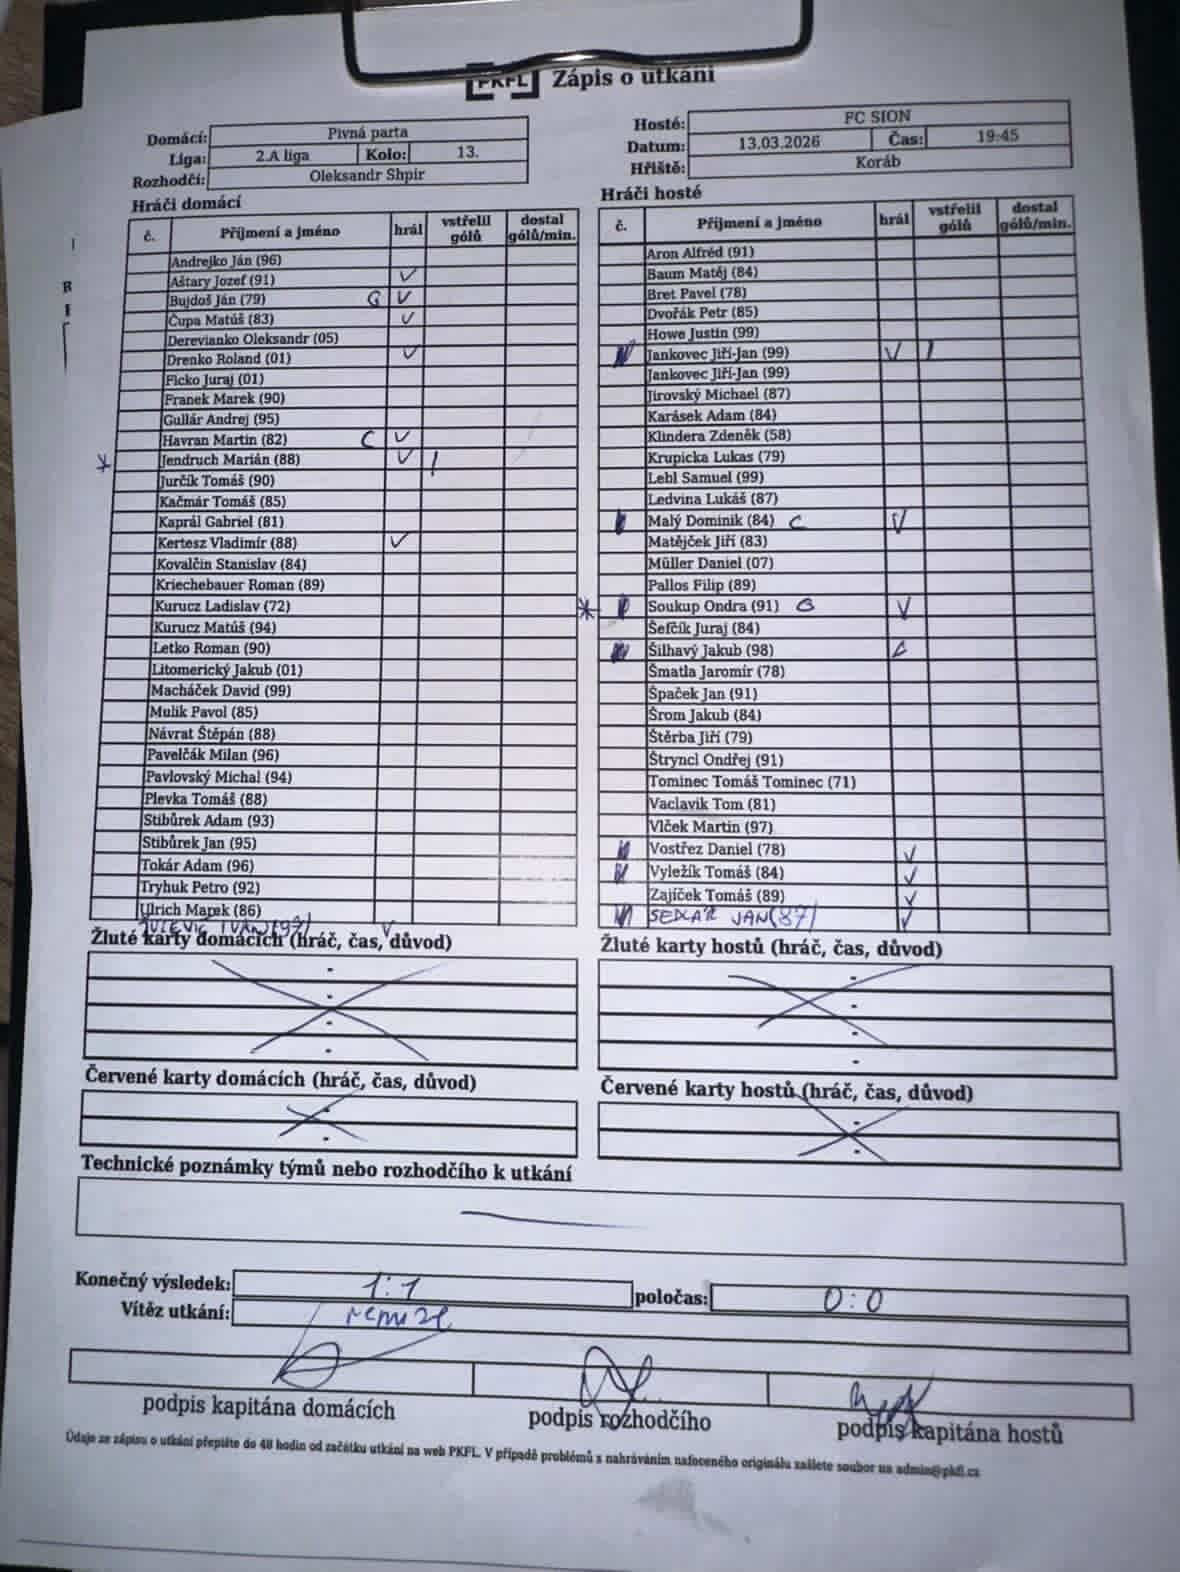 PKFL Zápis o utkání
Domácí: Pivná parta
Liga: 2.A liga Kolo: 13.
Rozhodčí: Oleksandr Shpir
Hosté: FC SION
Datum: 13.03.2026 Čas: 19:45
Hřiště: Koráb
Hráči domácí
č. Příjmení a jméno hrál vstřelil gólů dostal gólů/min.
Andrejko Ján (96)
Aštary Jozef (91) V
Bujdoš Ján (79) G V
Čupa Matúš (83) V
Derevianko Oleksandr (05)
Drenko Roland (01) V
Ficko Juraj (01)
Franek Marek (90)
Gullár Andrej (95)
Havran Martin (82) C V
* Jendruch Marián (88) V 1
Jurčík Tomáš (90)
Kačmár Tomáš (85)
Kaprál Gabriel (81)
Kertesz Vladimír (88) V
Kovalčin Stanislav (84)
Kriechebauer Roman (89)
Kurucz Ladislav (72)
Kurucz Matúš (94)
Letko Roman (90)
Litomerický Jakub (01)
Macháček David (99)
Mulik Pavol (85)
Návrat Štěpán (88)
Pavelčák Milan (96)
Pavlovský Michal (94)
Plevka Tomáš (88)
Stibůrek Adam (93)
Stibůrek Jan (95)
Tokár Adam (96)
Tryhuk Petro (92)
Ulrich Marek (86)
IVAN (97) V
Hráči hosté
č. Příjmení a jméno hrál vstřelil gólů dostal gólů/min.
Aron Alfréd (91)
Baum Matěj (84)
Bret Pavel (78)
Dvořák Petr (85)
Howe Justin (99)
Jankovec Jiří-Jan (99) V 1
Jankovec Jiří-Jan (99)
Jirovský Michael (87)
Karásek Adam (84)
Klindera Zdeněk (58)
Krupicka Lukas (79)
Lebl Samuel (99)
Ledvina Lukáš (87)
Malý Dominik (84) C V
Matějček Jiří (83)
Müller Daniel (07)
Pallos Filip (89)
* Soukup Ondra (91) G V
Šefčík Juraj (84)
Šilhavý Jakub (98)
Šmatla Jaromír (78)
Špaček Jan (91)
Šrom Jakub (84)
Štěrba Jiří (79)
Štryncl Ondřej (91)
Tominec Tomáš Tominec (71)
Vaclavik Tom (81)
Vlček Martin (97)
Vostřez Daniel (78) V
Vyležík Tomáš (84) V
Zajíček Tomáš (89) V
SEDLAŘ JAN (87) V
Žluté karty domácích (hráč, čas, důvod)
Žluté karty hostů (hráč, čas, důvod)
Červené karty domácích (hráč, čas, důvod)
Červené karty hostů (hráč, čas, důvod)
Technické poznámky týmů nebo rozhodčího k utkání
Konečný výsledek: 1:1 poločas: 0:0
Vítěz utkání: remíze
podpis kapitána domácích podpis rozhodčího podpis kapitána hostů
Údaje ze zápisu o utkání přepište do 48 hodin od začátku utkání na web PKFL. V případě problémů s nahráváním nafoceného originálu zašlete soubor na admin@pkfl.cz